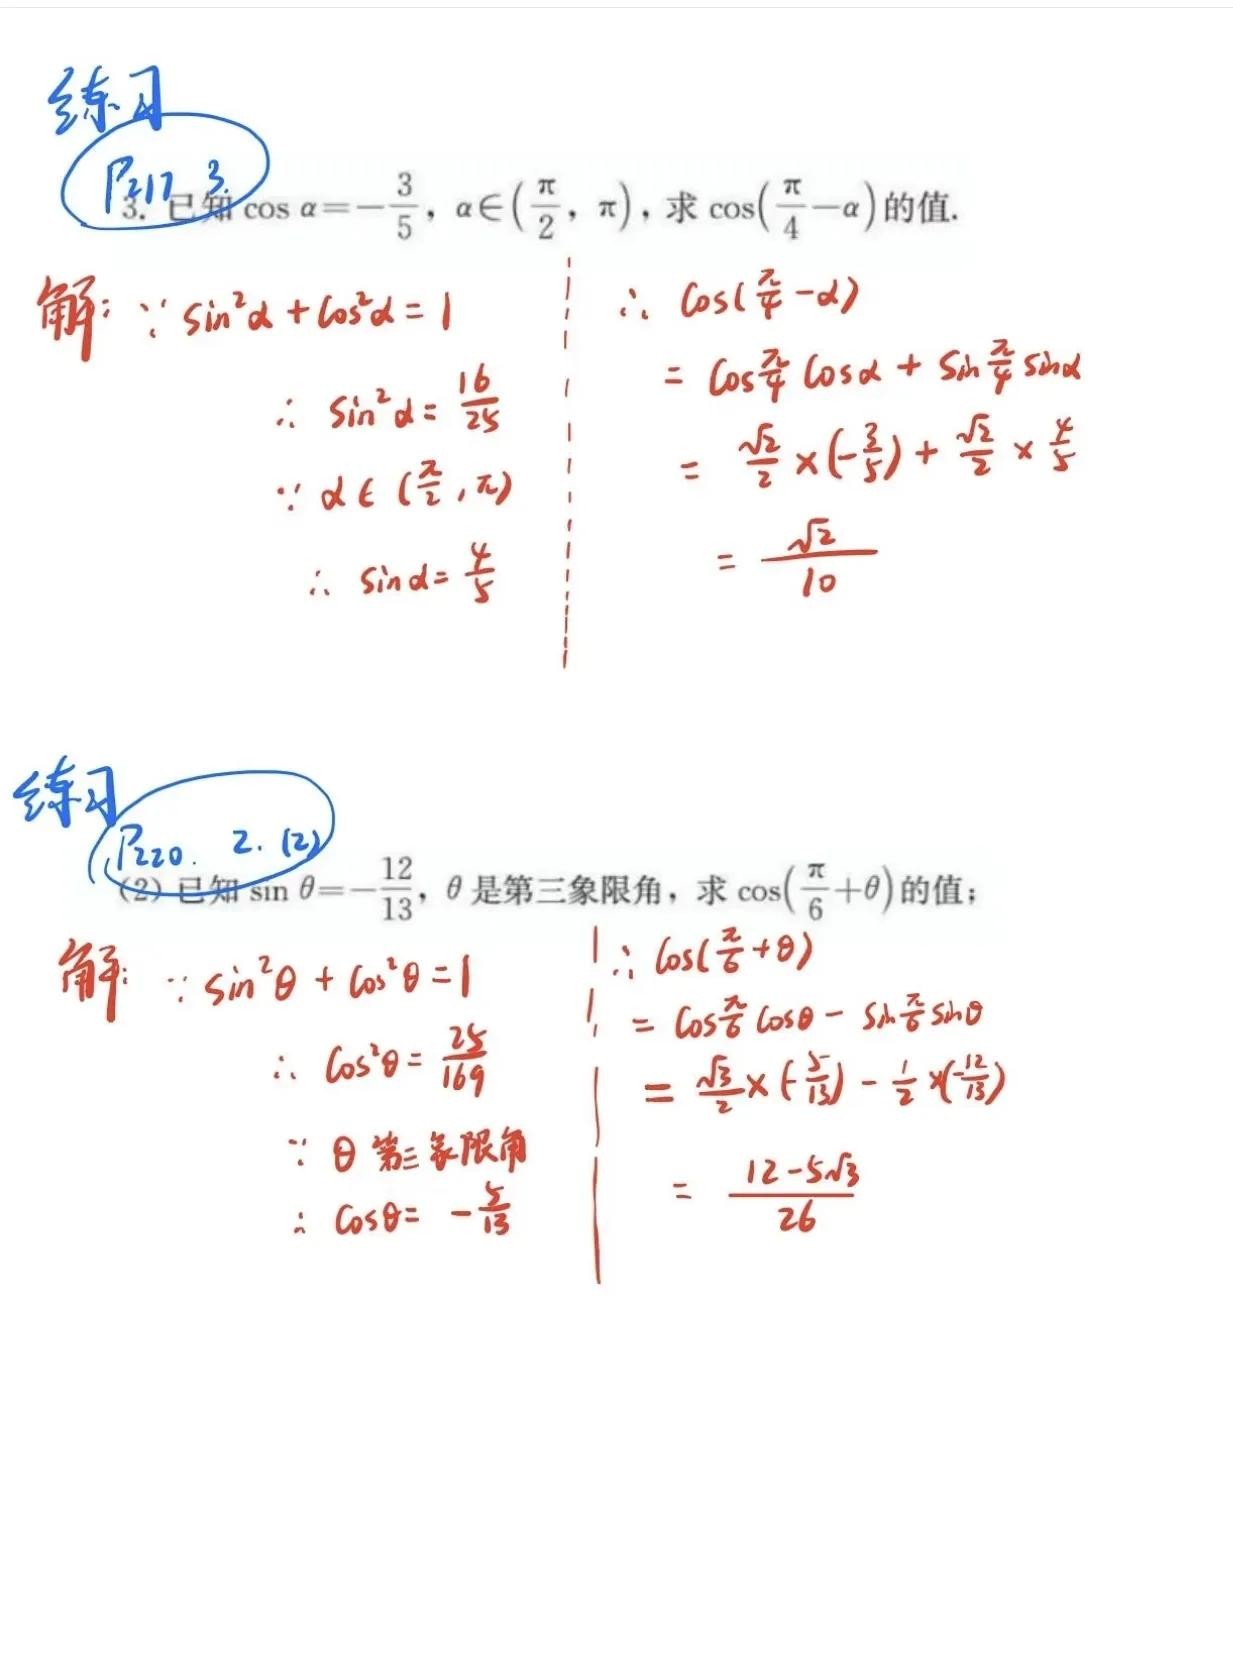 练习
P217 3.
3. 已知 cos α=-3/5, α∈(π/2, π), 求 cos(π/4-α)的值.
解: ∵ sin²α + cos²α = 1
∴ sin²α = 16/25
∵ α ∈ (π/2, π)
∴ sinα = 4/5
∴ cos(π/4 - α)
= cos π/4 cosα + sin π/4 sinα
= √2/2 × (-3/5) + √2/2 × 4/5
= √2/10
练习
P220. 2. (2)
(2) 已知 sin θ=-12/13, θ 是第三象限角, 求 cos(π/6+θ)的值;
解: ∵ sin²θ + cos²θ = 1
∴ cos²θ = 25/169
∵ θ 第三象限角
∴ cosθ = -5/13
∴ cos(π/6 + θ)
= cos π/6 cosθ - sin π/6 sinθ
= √3/2 × (-5/13) - 1/2 × (-12/13)
= (12-5√3)/26